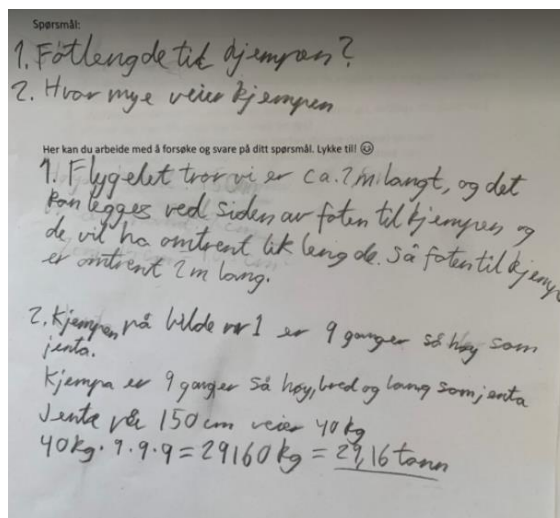 Spørsmål:
1. Fotlengde til kjempen?
2. Hvor mye veier kjempen
Her kan du arbeide med å forsøke og svare på ditt spørsmål. Lykke til! ☺
1. Flygelet tror vi er ca. 2 m langt, og det
kan legges ved siden av foten til kjempen og
de vil ha omtrent lik lengde. Så foten til kjemp
er omtrent 2 m lang.
2. Kjempen på bilde nr 1 er 9 ganger så høy som
jenta.
Kjempa er 9 ganger så høy, bred og lang som jenta
Jente på 150 cm veier 40 kg
40kg · 9 · 9 · 9 = 29160 kg = 29,16 tonn